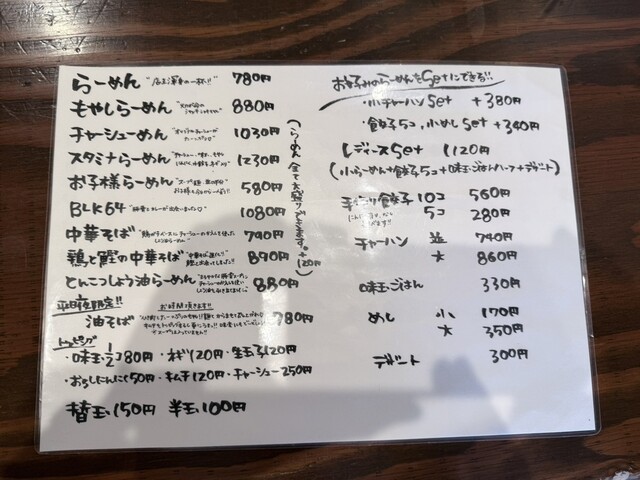 らーめん "店主渾身の一杯!!" 780円
もやしらーめん 880円
チャーシューめん 1030円
スタミナらーめん 1230円
お子様らーめん 580円
BLK64 1080円
中華そば 790円
鶏と鰹の中華そば 890円
とんこつしょう油らーめん 880円
(らーめん全て大盛りできます。+120円)
平日夜限定!!
お時間頂きます!!
油そば 780円
トッピング
・味玉1/2コ80円・ネギ120円・生玉子120円
・おろしにんにく50円・キムチ120円・チャーシュー250円
替玉150円 半玉100円
お好みのらーめんをSetにできる!!
・小チャーハンSet +380円
・餃子5コ、小めしSet +340円
レディースSet 1120円
(小らーめん+餃子5コ+味玉ごはんハーフ+デザート)
手造り餃子 10コ 560円
5コ 280円
チャーハン 並 740円
大 860円
味玉ごはん 330円
めし 小 170円
大 350円
デザート 300円